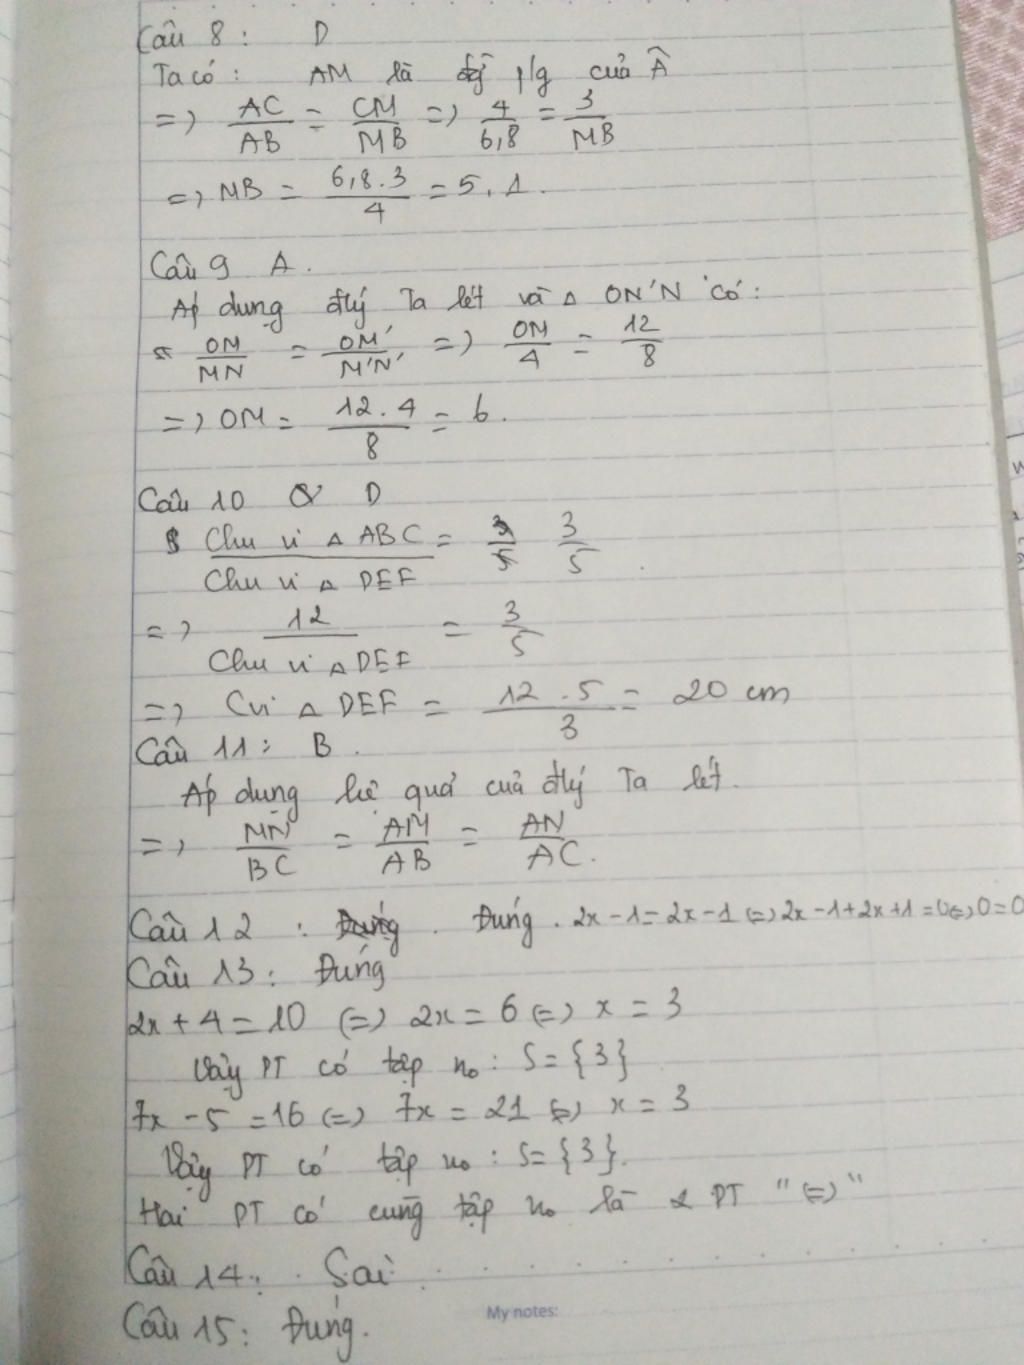 Câu 8 : D
Ta có : AM là p/g của Â
=> AC/AB = CM/MB => 4/6,8 = 3/MB
=> MB = 6,8.3/4 = 5,1.
Câu 9 A.
Áp dụng đlý Ta lét và Δ ON'N có :
OM/MN = OM'/M'N' => OM/4 = 12/8
=> OM = 12.4/8 = 6.
Câu 10 D
Chu vi Δ ABC/Chu vi Δ DEF = 3/5 3/5
=> 12/Chu vi Δ DEF = 3/5
=> Cvi Δ DEF = 12.5/3 = 20 cm
Câu 11 : B.
Áp dụng hệ quả của đlý Ta lét.
=> MN/BC = AM/AB = AN/AC.
Câu 12 : Đúng. Đúng. 2x - 1 = 2x - 1 (=) 2x - 1 + 2x + 1 = 0 (=) 0 = 0
Câu 13 : Đúng
2x + 4 = 10 (=) 2x = 6 (=) x = 3
Vậy PT có tập no : S = {3}
7x - 5 = 16 (=) 7x = 21 (=) x = 3
Vậy PT có tập no : S = {3}.
Hai PT có cùng tập no là 2 PT "(=)"
Câu 14 : Sai
My notes:
Câu 15 : Đúng.